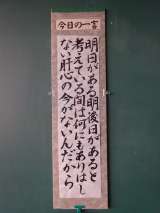 今日の一言
明日がある明後日があると
考えている間は何にもありはし
ない肝心の今がないんだから